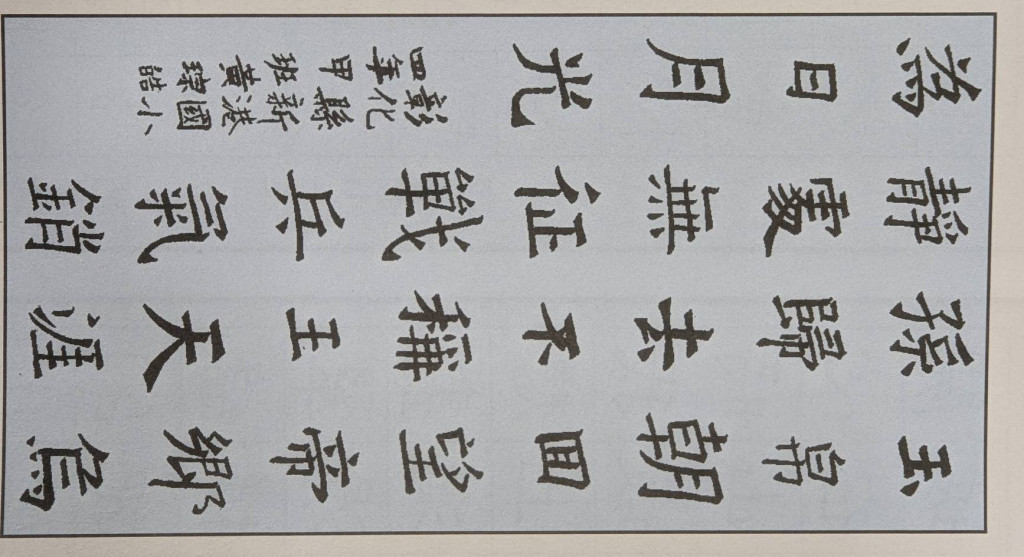 玉帛朝回望帝鄉烏
孫歸去不稱王天涯
靜處無征戰兵氣銷
為日月光
彰化縣新港國小
四年甲班黃皓